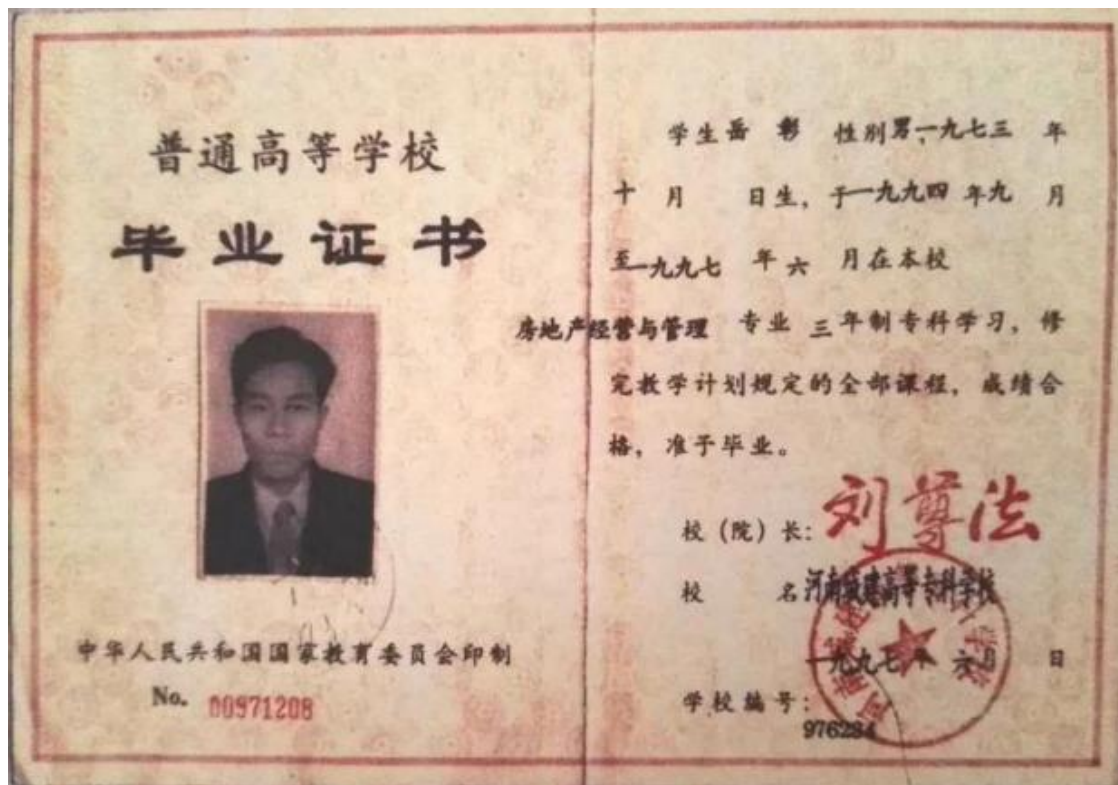 普通高等学校
毕业证书
中华人民共和国国家教育委员会印制
No. 00971208
学生 岳 彰 性别 男,一九七三 年
十 月 日生,于一九九四 年九 月
至一九九七 年 六 月在本校
房地产经营与管理 专业 三 年制专科学习,修
完教学计划规定的全部课程,成绩合
格,准予毕业。
校(院)长: 刘尊法
校 名 河南城建高等专科学校
一九九七 年 六 月 日
学校编号:
976284